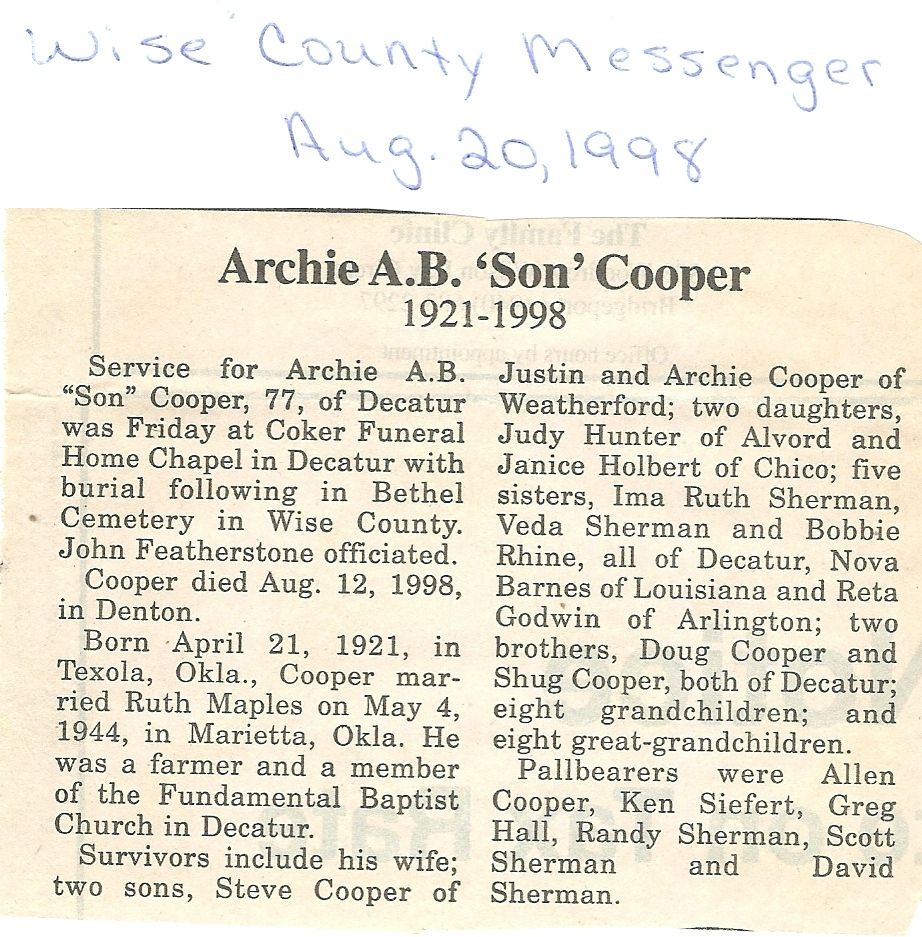 Wise County Messenger
Aug. 20, 1998
The Family Clinic
Office hours by appointment
Archie A.B. ‘Son’ Cooper
1921-1998
Service for Archie A.B.
“Son” Cooper, 77, of Decatur
was Friday at Coker Funeral
Home Chapel in Decatur with
burial following in Bethel
Cemetery in Wise County.
John Featherstone officiated.
Cooper died Aug. 12, 1998,
in Denton.
Born April 21, 1921, in
Texola, Okla., Cooper mar-
ried Ruth Maples on May 4,
1944, in Marietta, Okla. He
was a farmer and a member
of the Fundamental Baptist
Church in Decatur.
Survivors include his wife;
two sons, Steve Cooper of
Justin and Archie Cooper of
Weatherford; two daughters,
Judy Hunter of Alvord and
Janice Holbert of Chico; five
sisters, Ima Ruth Sherman,
Veda Sherman and Bobbie
Rhine, all of Decatur, Nova
Barnes of Louisiana and Reta
Godwin of Arlington; two
brothers, Doug Cooper and
Shug Cooper, both of Decatur;
eight grandchildren; and
eight great-grandchildren.
Pallbearers were Allen
Cooper, Ken Siefert, Greg
Hall, Randy Sherman, Scott
Sherman and David
Sherman.